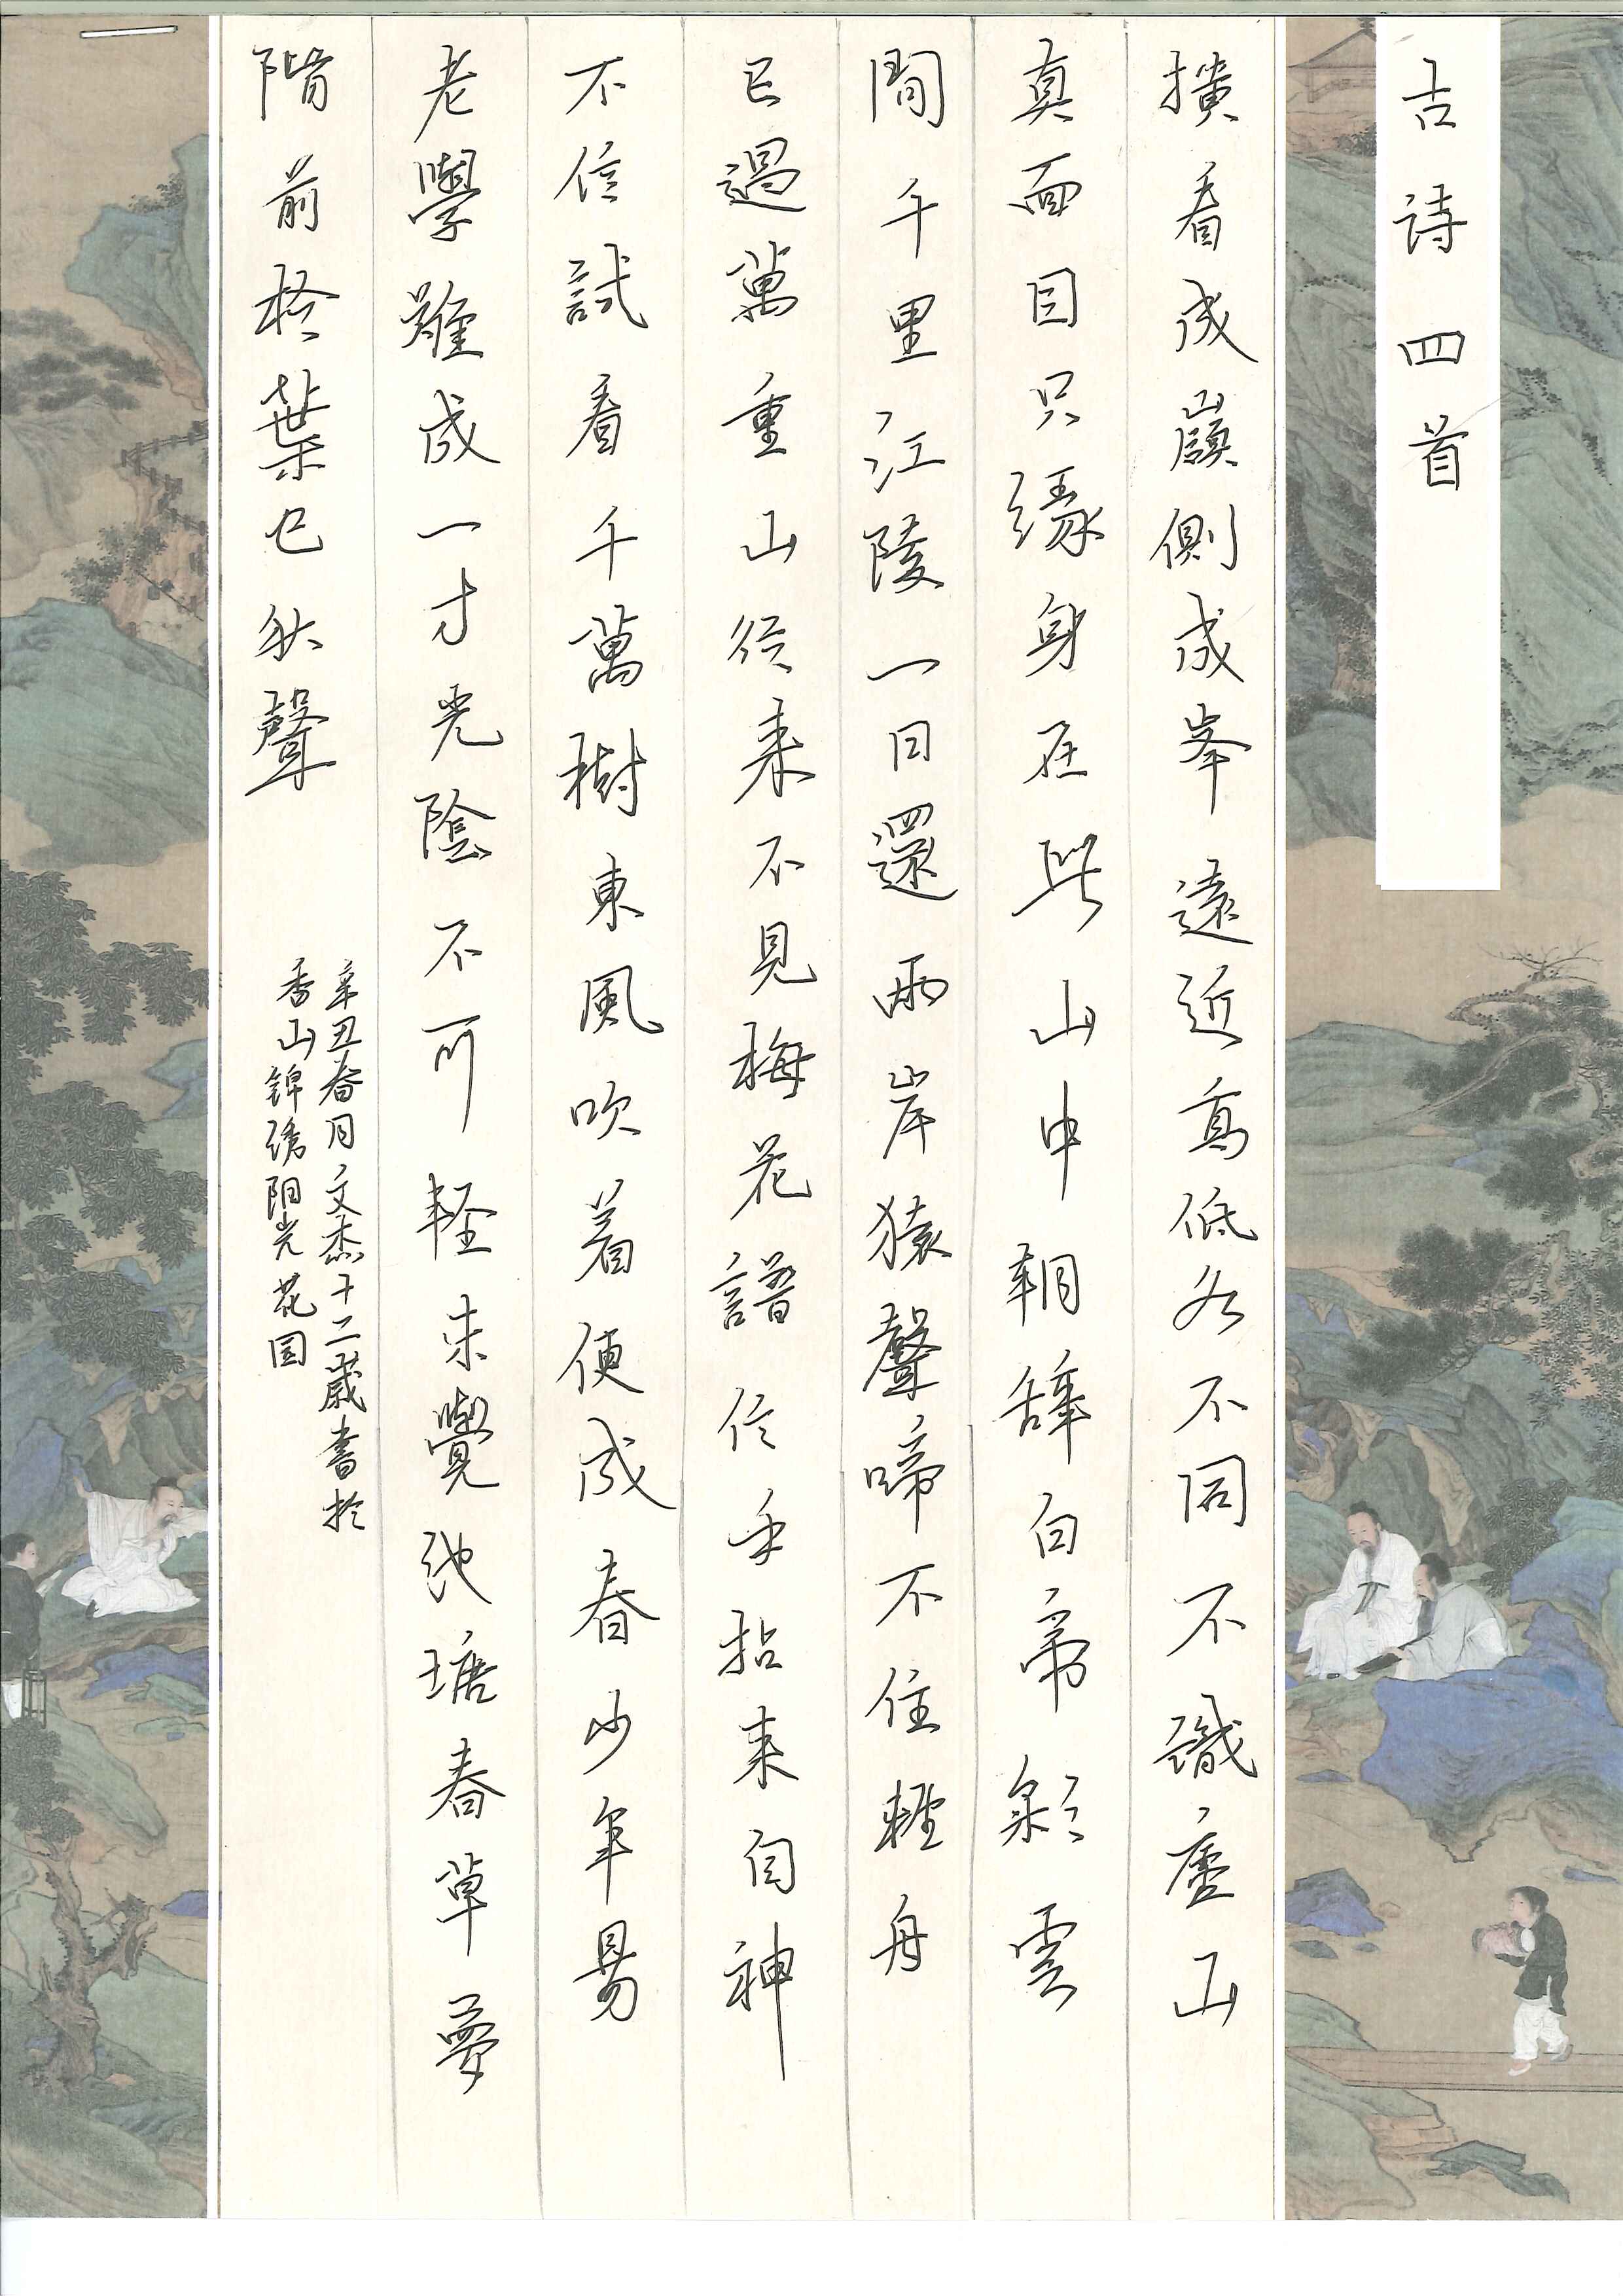 古诗四首
橫看成嶺側成峯遠近高低各不同不識廬山
真面目只緣身在此山中朝辭白帝彩雲
間千里江陵一日還兩岸猿聲啼不住輕舟
已過萬重山從来不見梅花譜信手拈来自神
不信試看千萬樹東風吹着便成春少年易
老學難成一寸光陰不可輕未覺池塘春草夢
階前梧葉已秋聲
辛丑春月文杰十二歲書於
香山锦绣阳光花园